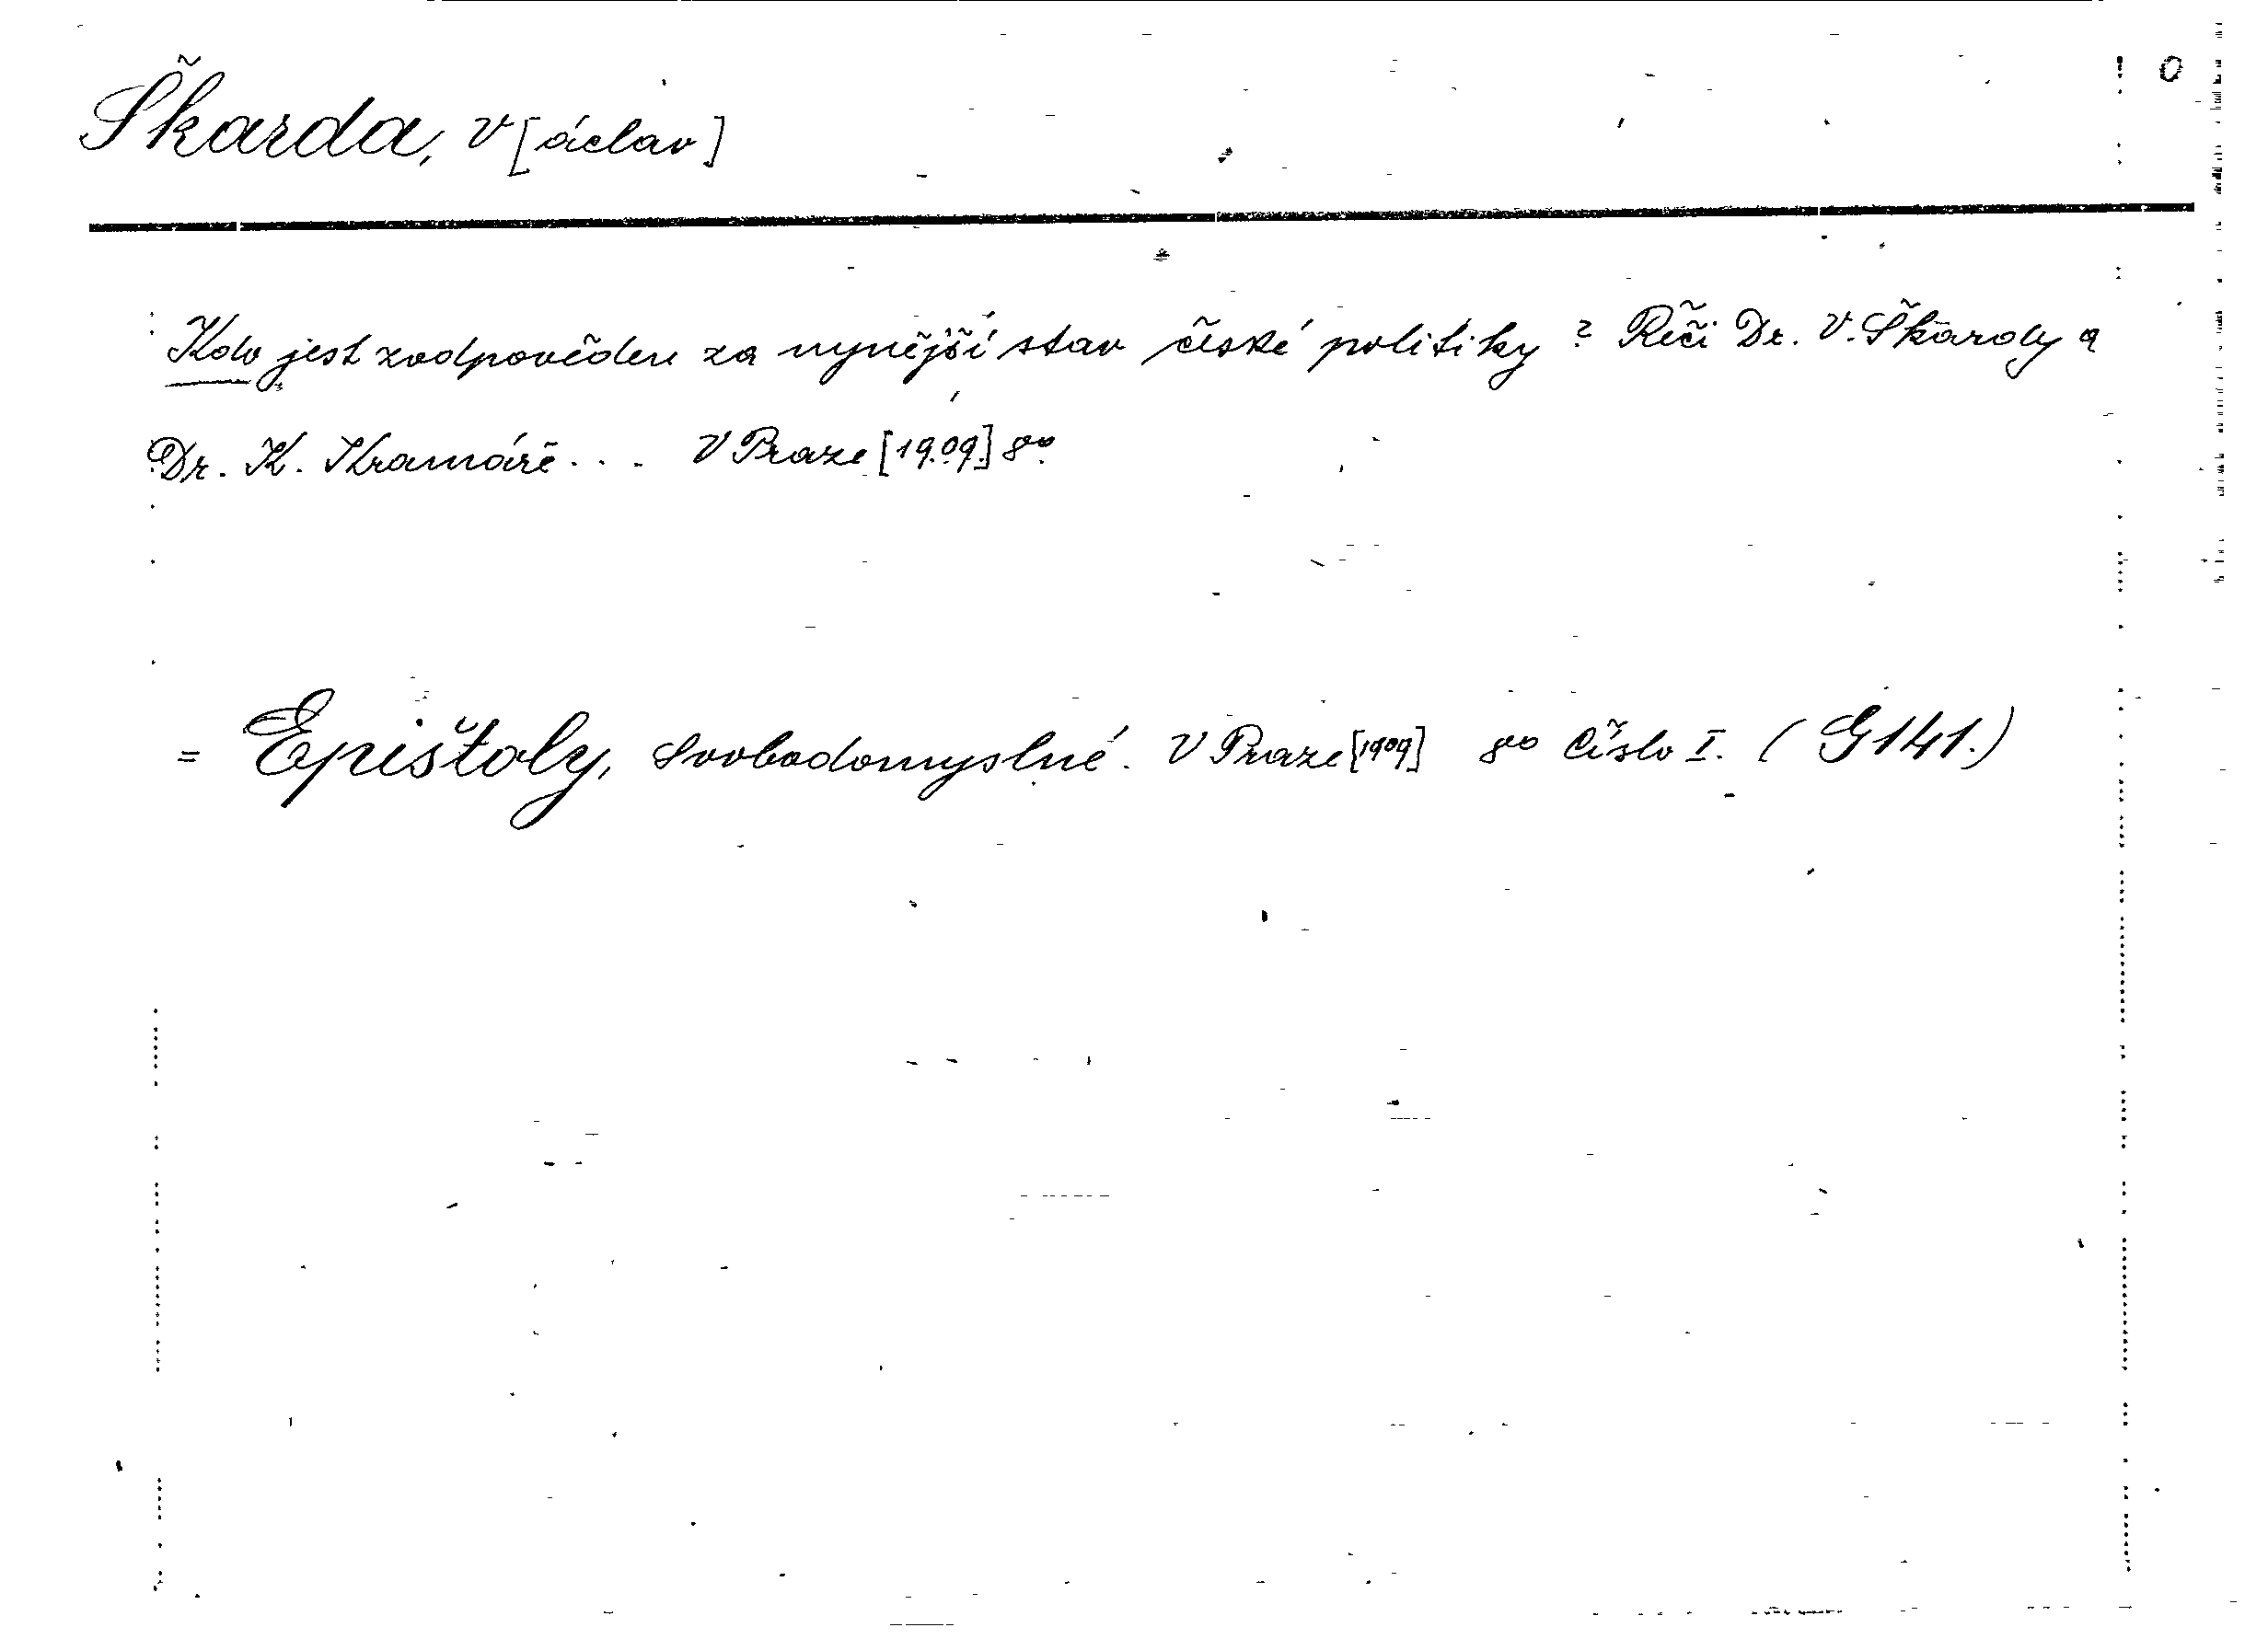 Škarda, V[áclav]
0
Kdo jest zodpověden za nynější stav české politiky? Řeči Dr. V. Škardy a
Dr. K. Kramáře... V Praze [1909] 8o
= Epištoly, Svobodomyslné. V Praze [1909] 8o Číslo I. (G 141.)